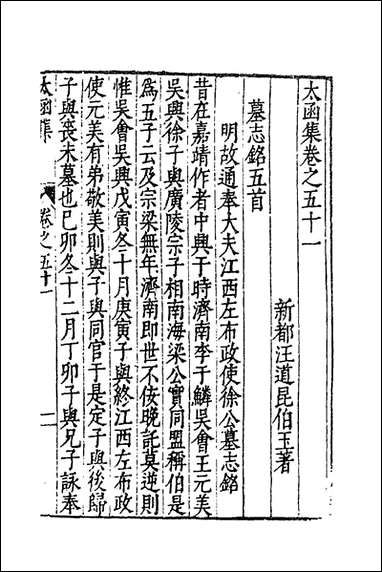 太函集卷之五十一
新都汪道昆伯玉著
墓志銘五首
明故通奉大夫江西左布政使徐公墓志銘
昔在嘉靖作者中興于時濟南李于鱗吳會王元美
吳興徐子與廣陵宗子相南海梁公實同盟稱伯是
爲五子云及宗梁無年濟南即世不佞晚託莫逆則
惟吳會吳興戊寅冬十月庚寅子與終江西左布政
使元美有弟敬美則與子與同官于是定子與後歸
子與喪未墓也己卯冬十二月丁卯子與兄子詠奉
太函集
卷之五十一